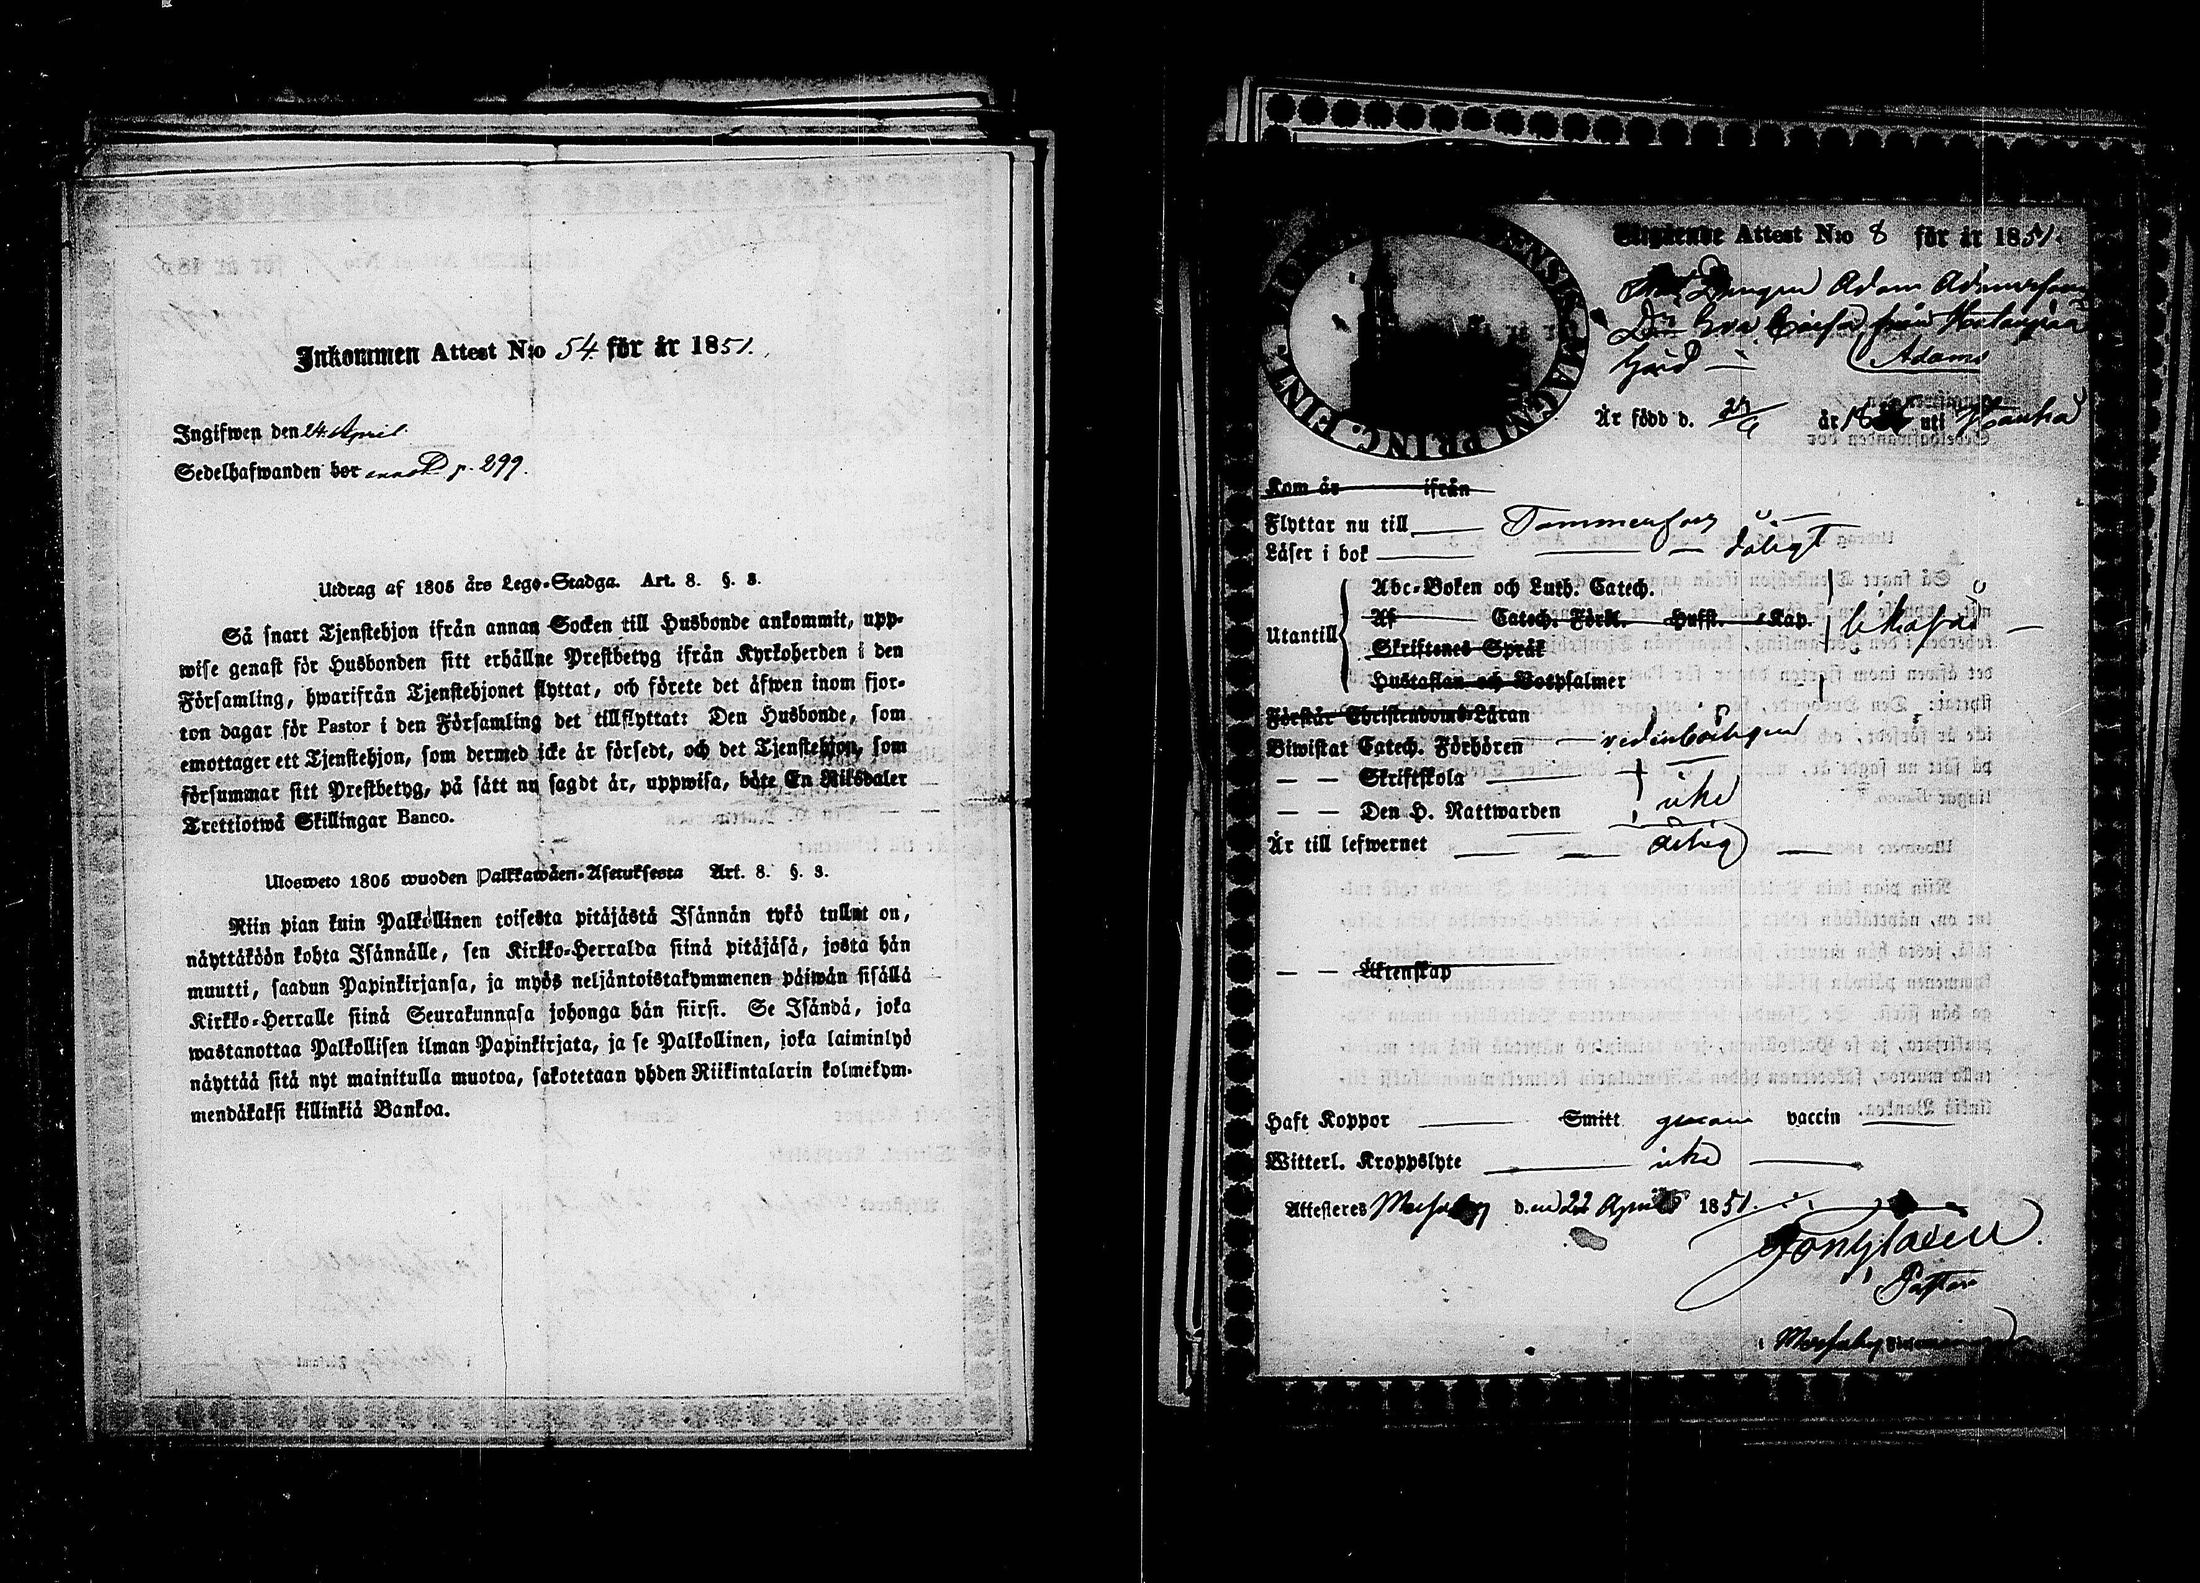 Inkommen Attest N:o 54 för år 1851.
Ingifwen den 24 April
Sedelhafwanden bor p. 299.
Utdrag af 1805 års Lego-Stadga. Art. 8. §. 3.
Så snart Tjenstehjon ifrån annan Socken till Husbonde ankommit, upp-
wise genast för Husbonden sitt erhållne Prestbetyg ifrån Kyrkoherden i den
Församling, hwarifrån Tjenstehjonet flyttat, och förete det äfwen inom fjor-
ton dagar för Pastor i den Församling det tillflyttat: Den Husbonde, som
emottager ett Tjenstehjon, som dermed icke är försedt, och det Tjenstehjon, som
försummar sitt Prestbetyg, på sätt nu sagdt är, uppwisa, böte En Riksdaler
Trettiotwå Skillingar Banco.
Ulosweto 1805 wuoden Palkkawäen-Asetuksesta Art. 8. §. 3.
Niin pian kuin Palkollinen toisesta pitäjästä Isännän tykö tullut on,
näyttäköön kohta Isännälle, sen Kirkko-Herralda siinä pitäjäsä, josta hän
muutti, saadun Papinkirjansa, ja myös neljäntoistakymmenen päiwän sisällä
Kirkko-Herralle siinä Seurakunnasa johonga hän siirsi. Se Isändä, joka
wastanottaa Palkollisen ilman Papinkirjata, ja se Palkollinen, joka laiminlyö
näyttää sitä nyt mainitulla muotoa, sakotetaan yhden Riikintalarin kolmekym-
mendäkaksi killinkiä Bankoa.
Utgående Attest N:o 8 för år 1851.
Drengen Adam Adamsson
Dr Eva Caisa från
Adams
gård
Är född d. år 18 uti
Kom år ifrån
Flyttar nu till Tammerfors
Läser i bok dåligt
Utantill
Abc-Boken och Luth. Catech.
Af Catech. Förkl. Hufst. Kap.
Skriftenes Språk
Hustaflan och Botpsalmer
likaså
Förstår Christendoms Läran
Biwistat Catech. Förhören vederbörligen
— — Skriftskola
— — Den H. Nattwarden icke
Är till lefwernet ärlig
— — Äktenskap
Haft Koppor Smitt genom vaccin
Witterl. Kroppslyte icke
Attesteres Messuby den 22 April 1851.
Pastor
i Messuby